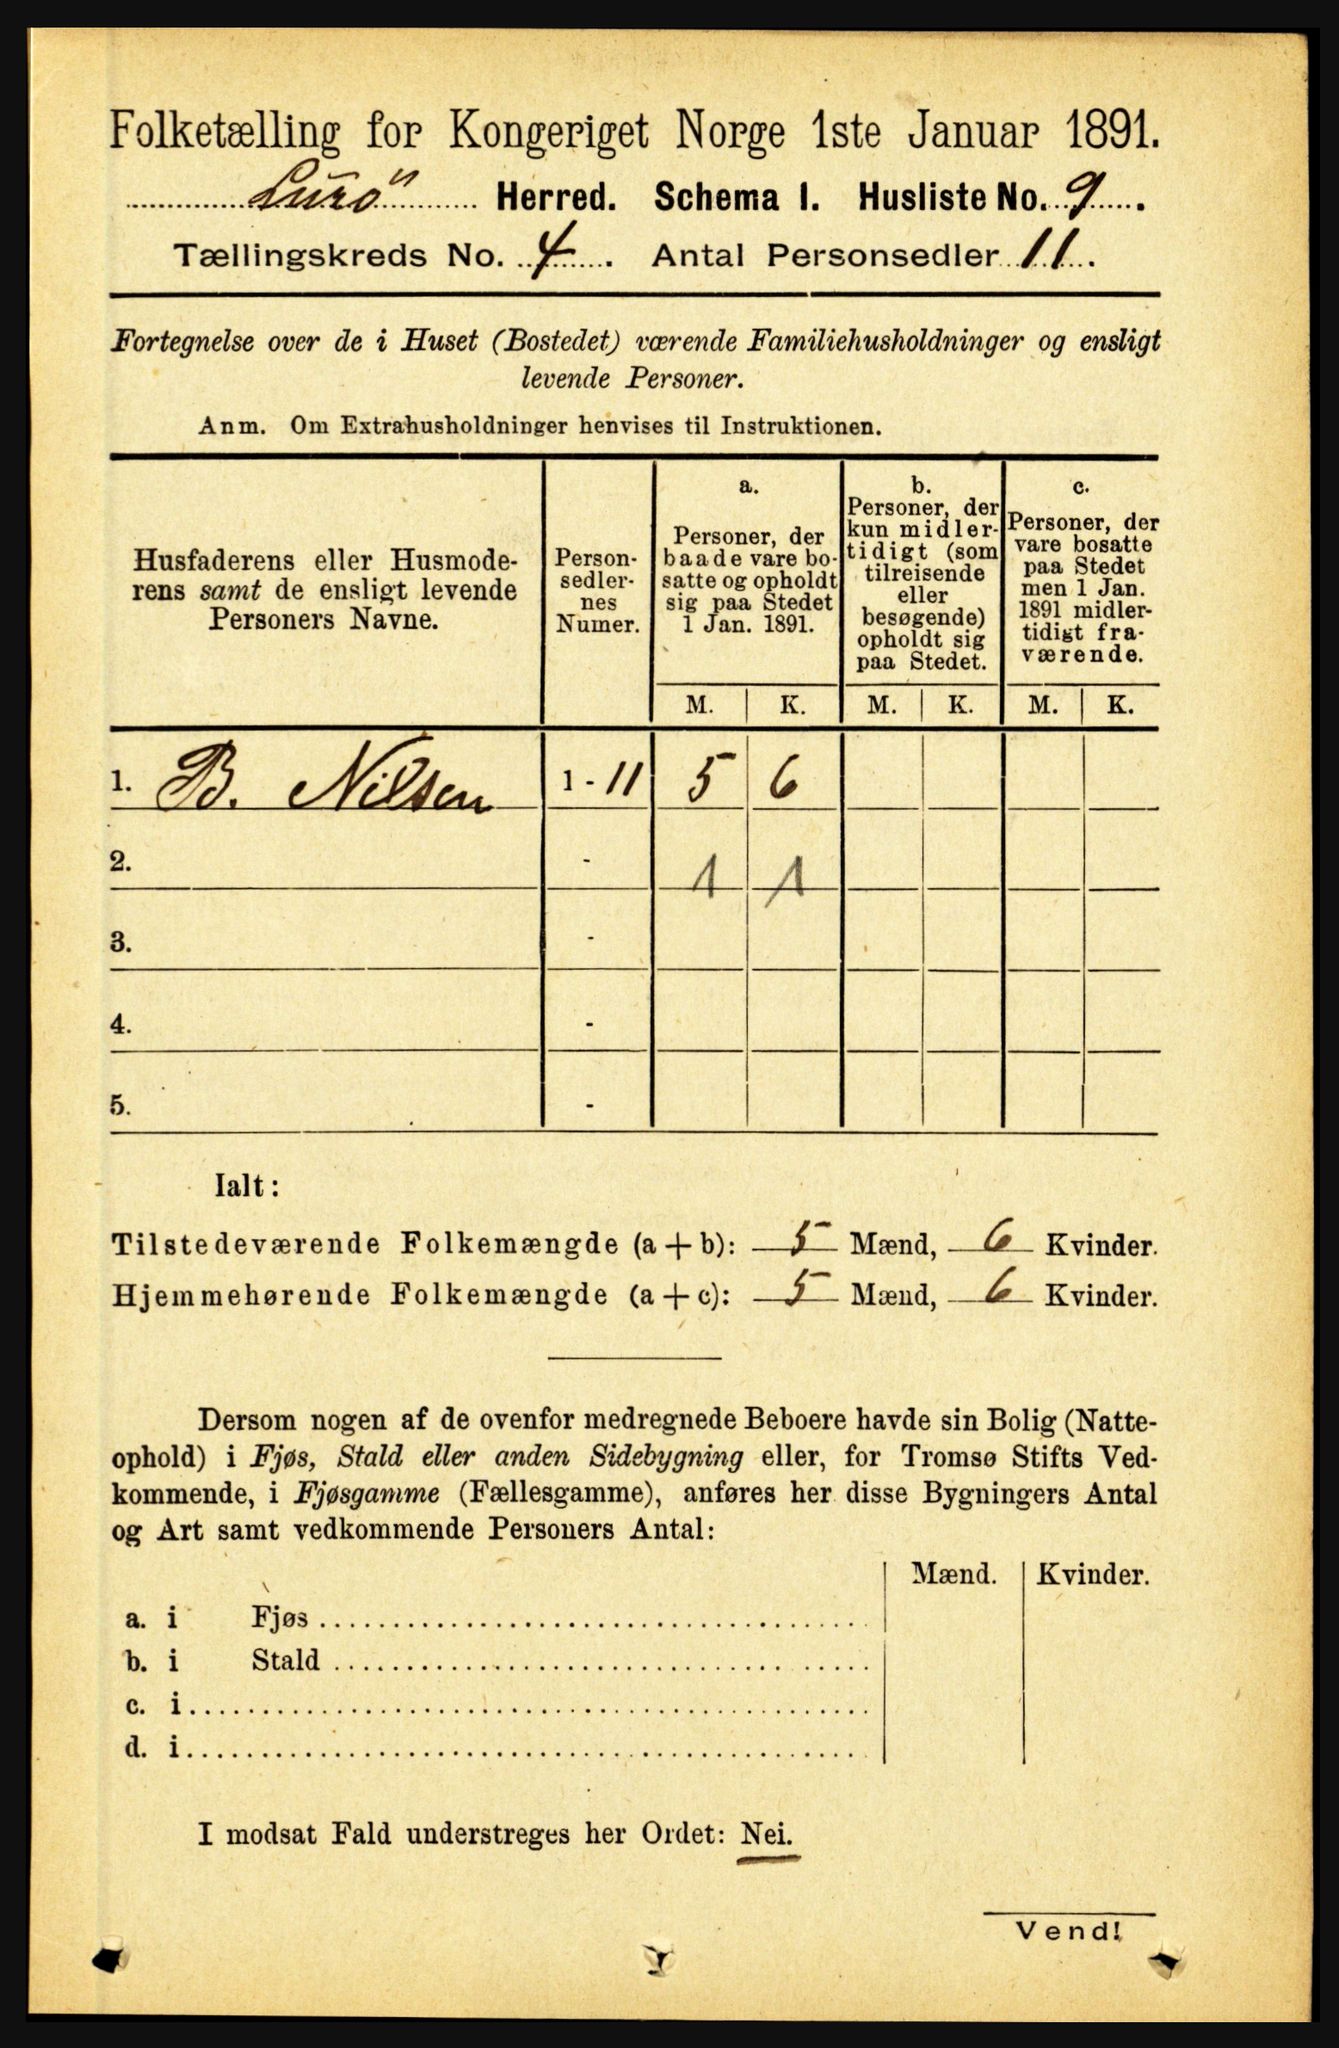 Folketælling for Kongeriget Norge 1ste Januar 1891.
Lurö Herred. Schema I. Husliste No. 9.
Tællingskreds No. 4. Antal Personsedler 11.
Fortegnelse over de i Huset (Bostedet) værende Familiehusholdninger og ensligt
levende Personer.
Anm. Om Extrahusholdninger henvises til Instruktionen.
Husfaderens eller Husmode-
rens samt de ensligt levende
Personers Navne.
Person-
sedler-
nes
Numer.
a.
Personer, der
baade vare bo-
satte og opholdt
sig paa Stedet
1 Jan. 1891.
b.
Personer, der
kun midler-
tidigt (som
tilreisende
eller
besøgende)
opholdt sig
paa Stedet.
c.
Personer, der
vare bosatte
paa Stedet
men 1 Jan.
1891 midler-
tidigt fra-
værende.
M. K. M. K. M. K.
1. B. Nilsen 1 - 11 5 6
2. - 1 1
3. -
4. -
5. -
Ialt:
Tilstedeværende Folkemængde (a + b): 5 Mænd, 6 Kvinder.
Hjemmehørende Folkemængde (a + c): 5 Mænd, 6 Kvinder.
Dersom nogen af de ovenfor medregnede Beboere havde sin Bolig (Natte-
ophold) i Fjøs, Stald eller anden Sidebygning eller, for Tromsø Stifts Ved-
kommende, i Fjøsgamme (Fællesgamme), anføres her disse Bygningers Antal
og Art samt vedkommende Personers Antal:
Mænd. Kvinder.
a. i Fjøs
b. i Stald
c. i
d. i
I modsat Fald understreges her Ordet: Nei.
Vend!